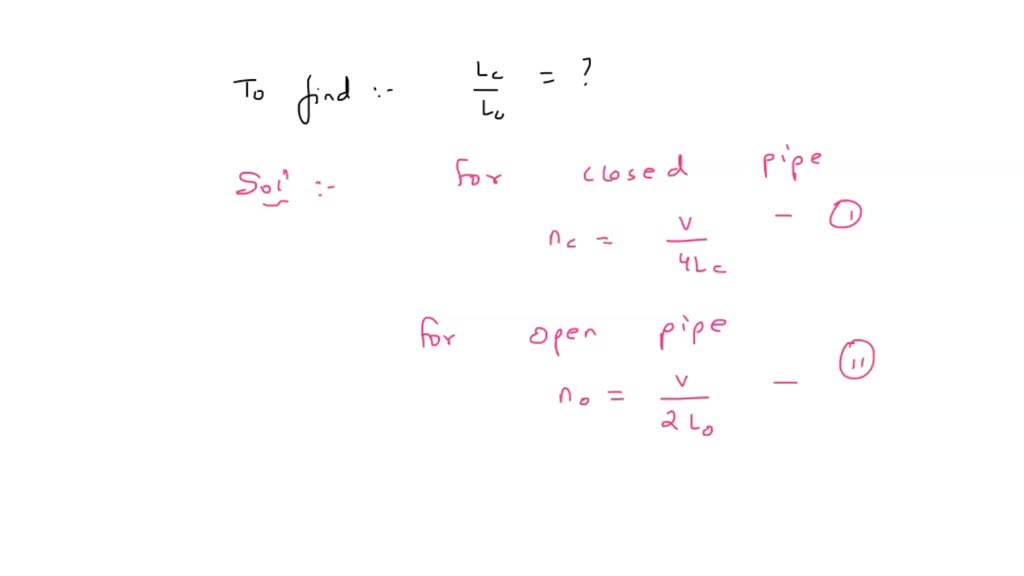 To find :- Lc / Lo = ?
Sol' :- For closed pipe
nc = v / 4Lc - (i)
For open pipe
no = v / 2Lo - (ii)